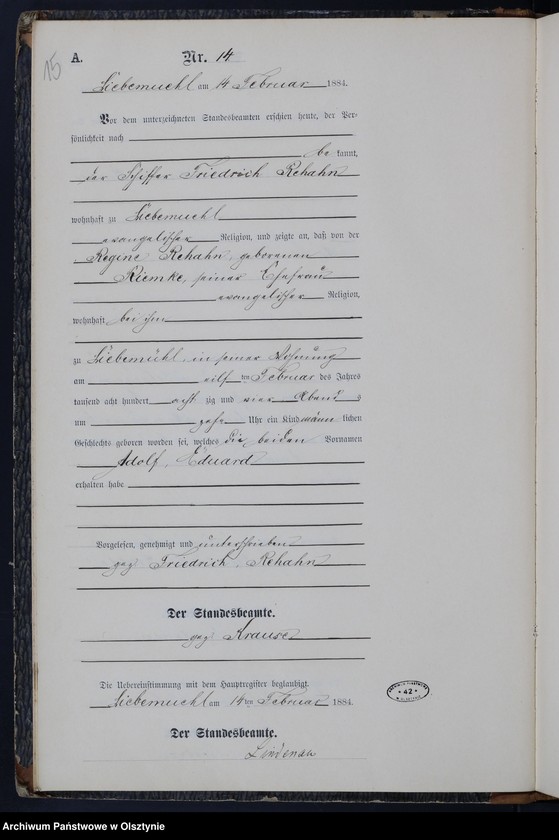 15
A. Nr. 14
Liebemuehl am 14 Februar 1884.
Vor dem unterzeichneten Standesbeamten erschien heute, der Per-
sönlichkeit nach
be kannt,
der Schiffer Friedrich Rehahn
wohnhaft zu Liebemuehl
evangelischer Religion, und zeigte an, daß von der
Regine Rehahn, geborenen
Riemke, seiner Ehefrau
evangelischer Religion,
wohnhaft bei ihm
zu Liebemühl, in seiner Wohnung
am eilf ten Februar des Jahres
tausend acht hundert acht zig und vier Abend s
um Uhr ein Kind männ lichen
Geschlechts geboren worden sei, welches die beiden Vornamen
Adolf, Eduard
erhalten habe
Vorgelesen, genehmigt und unterschrieben
gez. Friedrich Rehahn
Der Standesbeamte.
gez. Krause
Die Uebereinstimmung mit dem Hauptregister beglaubigt.
Liebemuehl am 14ten Februar 1884.
Der Standesbeamte.
Lindenau
42
Archiwum Państwowe w Olsztynie